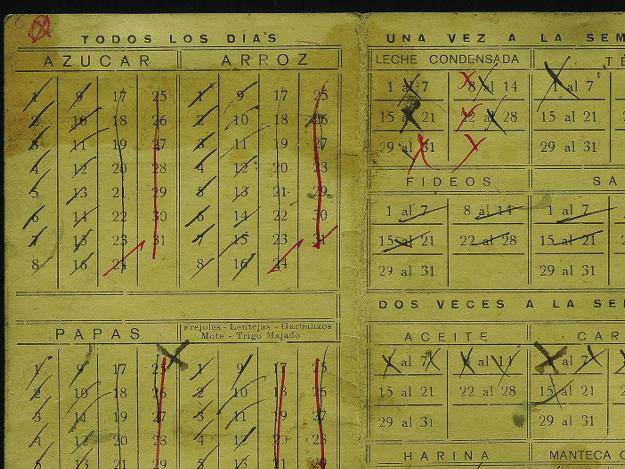 TODOS LOS DIAS
AZUCAR ARROZ
1 9 17 25 1 9 17 25
2 10 18 26 2 10 18 26
3 11 19 27 3 11 19 27
4 12 20 28 4 12 20
5 13 21 29 5 13 21 29
6 14 22 30 6 14 22 30
7 15 23 31 7 15 23 31
8 16 24 8 16 24
PAPAS Frejoles - Lentejas - Garbanzos
Mote - Trigo Majado
1 9 17 25 1 9 17 25
2 10 18 26 2 10 18 26
3 11 19 27 3 11 19 27
4 12 20 28 4 12 20 28
13 21 29 13 21
UNA VEZ A LA SEM
LECHE CONDENSADA TÉ
1 al 7 8 al 14 1 al 7
15 al 21 22 al 28 15 al 21
29 al 31 29 al 31
FIDEOS SA
1 al 7 8 al 14 1 al 7
15 al 21 22 al 28 15 al 21
29 al 31 29 al 31
DOS VECES A LA SE
ACEITE CAR
1 al 7 8 al 14 1 al 7
15 al 21 22 al 28 15 al 21
29 al 31 29 al 31
HARINA MANTECA C